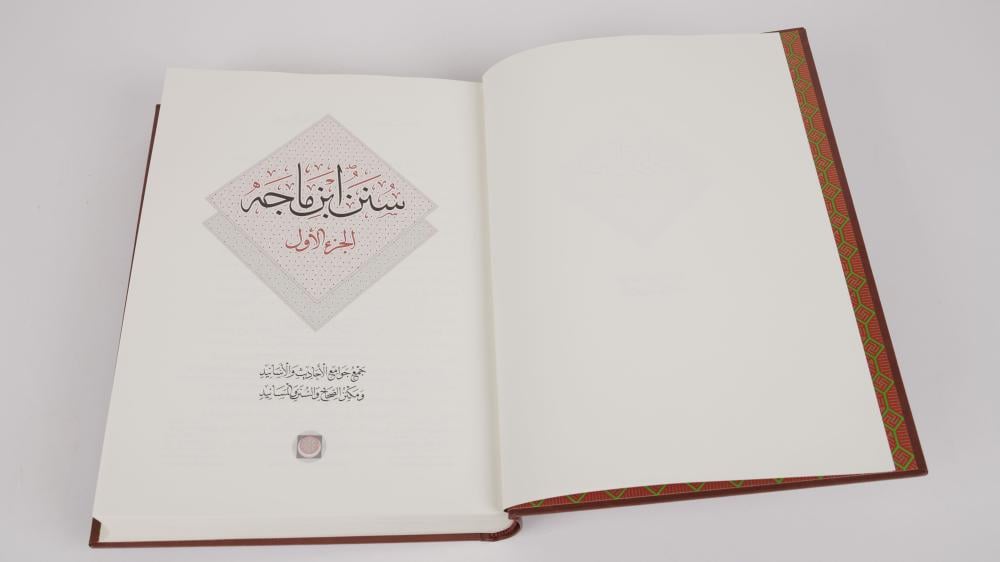 سُنَنُ ابْنِ مَاجَهْ
الجزء الأول
جَمْعُ جَوَامِعِ الأَحَادِيثِ وَالأَسَانِيدِ
وَمَكْنِزُ الصِّحَاحِ وَالسُّنَنِ وَالمَسَانِيدِ